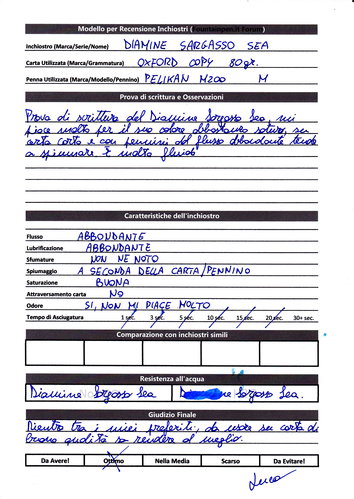 Modello per Recensione Inchiostri (fountainpen.it Forum)
Inchiostro (Marca/Serie/Nome) DIAMINE SARGASSO SEA
Carta Utilizzata (Marca/Grammatura) OXFORD COPY 80gr.
Penna Utilizzata (Marca/Modello/Pennino) PELIKAN M200 M
Prova di scrittura e Osservazioni
Prova di scrittura del Diamine Sargasso Sea, mi
piace molto per il suo colore abbastanza saturo, su
carta corta e con pennini dal flusso abbondante tende
a spiumare. È molto fluido
Caratteristiche dell'inchiostro
Flusso ABBONDANTE
Lubrificazione ABBONDANTE
Sfumature NON NE NOTO
Spiumaggio A SECONDA DELLA CARTA/PENNINO
Saturazione BUONA
Attraversamento carta NO
Odore SI, NON MI PIACE MOLTO
Tempo di Asciugatura 1 sec. 3 sec. 5 sec. 10 sec. 15 sec. 20 sec. 30+ sec.
Comparazione con inchiostri simili
Resistenza all'acqua
Diamine Sargasso Sea Diamine Sargasso Sea.
Giudizio Finale
Rientra tra i miei preferiti, da usare su carta di
buona qualità sa rendere al meglio.
Da Avere! Ottimo Nella Media Scarso Da Evitare!
Luca